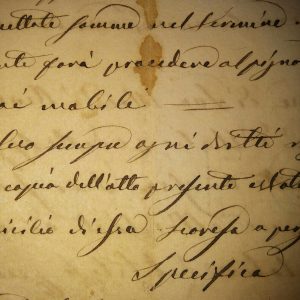 nettate somme nel termine
te farà procedere al pigno
ei mobili
lvo sempre ogni diritto
copia dell'atto presente e stata
icilio di essa a per
Specifica